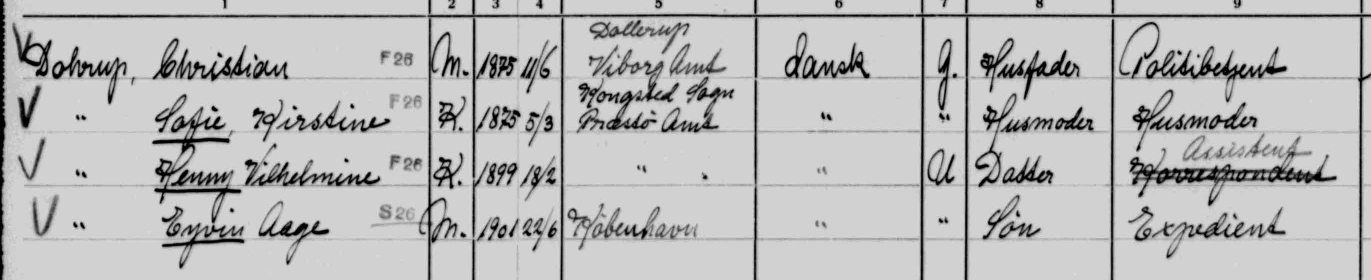 1 2 3 4 5 6 7 8 9
Dollerup
Dohrup, Christian F26 M. 1875 11/6 Viborg Amt dansk G. Husfader Politibetjent
Kongsted Sogn
" Sofie, Kirstine F26 K. 1875 5/3 Præstø Amt " " Husmoder Husmoder
Assistent
" Henny Vilhelmine F26 K. 1899 18/2 " " U Datter Korrespondent
" Eyvin Aage S26 M. 1901 22/6 København " " Søn Expedient